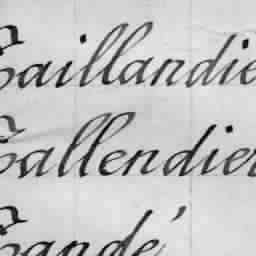 Taillandie
Tallendier
Tandé